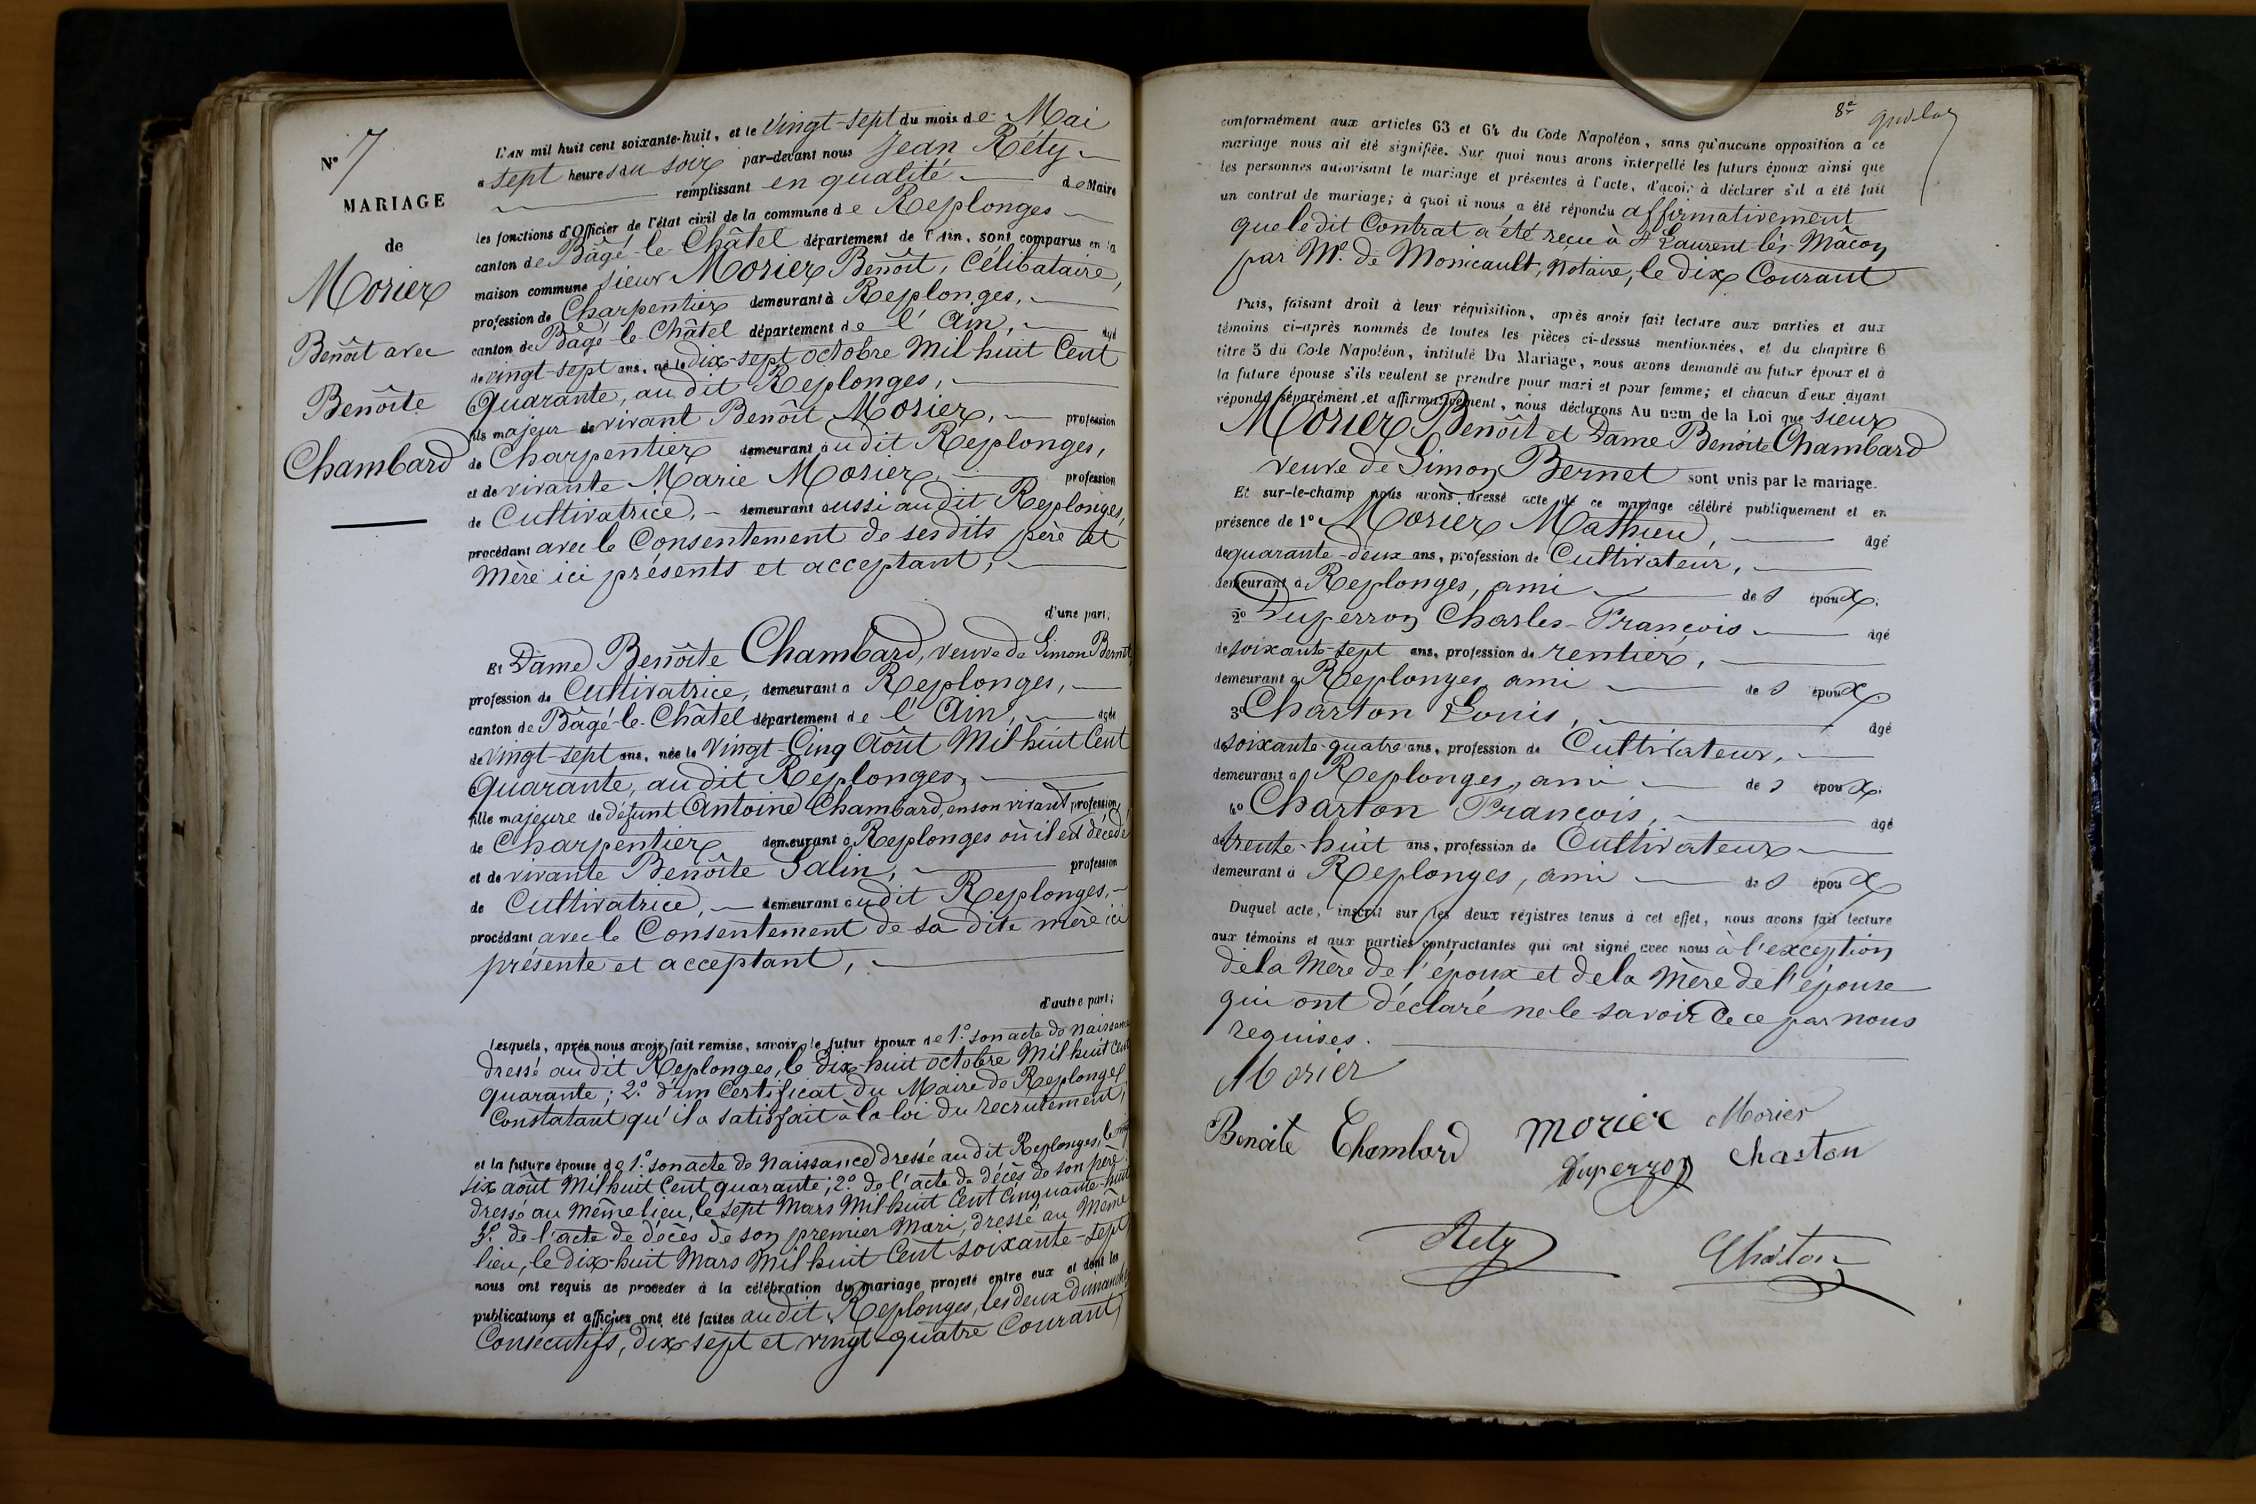 N° 7
MARIAGE
de
Morier
Benoît avec
Benoîte
Chambard
L'AN mil huit cent soixante-huit, et le Vingt-sept du mois de Mai
a sept heures du soir par-devant nous Jean Réty
remplissant en qualité de Maire
les fonctions d'Officier de l'état civil de la commune de Replonges
canton de Bâgé-le-Châtel département de l'Ain, sont comparus en la
maison commune sieur Morier Benoît, Célibataire,
profession de Charpentier demeurant à Replonges,
canton de Bâgé-le-Châtel département de l'Ain, âgé
de vingt-sept ans, né le dix-sept octobre Mil huit Cent
Quarante, au dit Replonges,
fils majeur de vivant Benoît Morier, profession
de Charpentier demeurant audit Replonges,
et de vivante Marie Morier profession
de Cultivatrice, demeurant aussi audit Replonges,
procédant avec le Consentement de ses dits père et
Mère ici présents et acceptant,
d'une part;
Et Dame Benoîte Chambard, veuve de Simon Bernet
profession de Cultivatrice, demeurant a Replonges,
canton de Bâgé-le-Châtel département de l'Ain, âgée
de Vingt-sept ans, née le Vingt-Cinq Août Mil huit Cent
Quarante, audit Replonges,
fille majeure de défunt Antoine Chambard, en son vivant profession
de Charpentier demeurant à Replonges où il est décédé
et de vivante Benoîte Salin, profession
de Cultivatrice, demeurant audit Replonges,
procédant avec le Consentement de sa dite mère ici
présente et acceptant,
d'autre part;
Lesquels, après nous avoir fait remise, savoir: le futur époux de 1.° son acte de naissance
dressé audit Replonges, le dix-huit octobre Mil huit Cent
quarante; 2.° d'un Certificat du Maire de Replonges
Constatant qu'il a satisfait à la loi du recrutement,
et la future épouse de 1.° son acte de Naissance dressé audit Replonges, le vingt
six août Mil huit Cent quarante; 2.° de l'acte de décès de son père
dressé au même lieu, le sept Mars Mil huit Cent Cinquante-huit
3.° de l'acte de décès de son premier Mari, dressé au Même
lieu, le dix-huit Mars Mil huit Cent soixante-sept
nous ont requis de procéder à la célébration du mariage projeté entre eux et dont les
publications et affiches ont été faites audit Replonges, les deux dimanches
Consécutifs, dix-sept et vingt-quatre Courant,
8e
conformément aux articles 63 et 64 du Code Napoléon, sans qu'aucune opposition à ce
mariage nous ait été signifiée. Sur quoi nous avons interpellé les futurs époux ainsi que
les personnes autorisant le mariage et présentes à l'acte, d'avoir à déclarer s'il a été fait
un contrat de mariage; à quoi il nous a été répondu affirmativement
que le dit Contrat a été reçu à St Laurent-lès-Mâcon
par Me. de Monicault, Notaire, le dix Courant
Puis, faisant droit à leur réquisition, après avoir fait lecture aux parties et aux
témoins ci-après nommés de toutes les pièces ci-dessus mentionnées, et du chapitre 6
titre 5 du Code Napoléon, intitulé Du Mariage, nous avons demandé au futur époux et à
la future épouse s'ils veulent se prendre pour mari et pour femme; et chacun d'eux ayant
répondu séparément et affirmativement, nous déclarons Au nom de la Loi que sieur
Morier Benoît et Dame Benoîte Chambard
veuve de Simon Bernet sont unis par le mariage.
Et sur-le-champ nous avons dressé acte de ce mariage célébré publiquement et en
présence de 1° Morier Mathieu, âgé
de quarante-deux ans, profession de Cultivateur,
demeurant à Replonges, ami de s époux.
2° Duperron Charles-François âgé
de soixante-sept ans, profession de rentier,
demeurant a Replonges, ami de s époux.
3° Charton Louis, âgé
de soixante-quatre ans, profession de Cultivateur,
demeurant a Replonges, ami de s époux.
4° Charton François, âgé
de trente-huit ans, profession de Cultivateur
demeurant à Replonges, ami de s époux
Duquel acte, inscrit sur les deux régistres tenus à cet effet, nous avons fait lecture
aux témoins et aux parties contractantes qui ont signé avec nous à l'exception
de la Mère de l'époux et de la Mère de l'épouse
qui ont déclaré ne le savoir de ce par nous
requises.
Morier
Benoite Chambard Morier Morier
Duperron Charton
Réty Charton